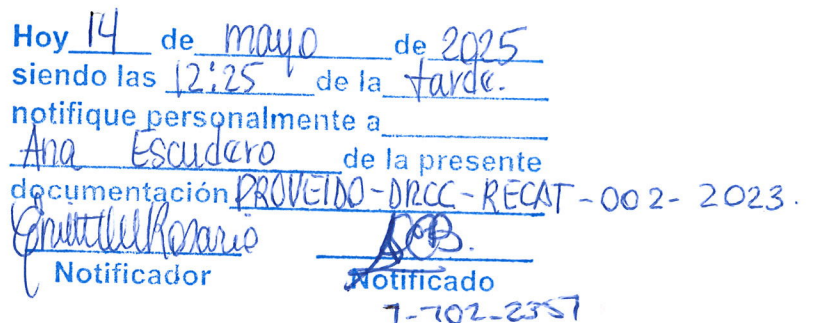 Hoy 14 de mayo de 2025
siendo las 12:25 de la tarde.
notifique personalmente a
Ana Escudero de la presente
documentación PROVEIDO-DRCC-RECAT-002-2023.
Rosario
Notificador Notificado
7-702-2357